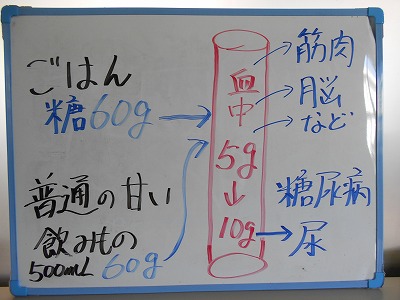 ごはん
糖60g
普通の甘い
飲みもの
500mL 60g
血中
5g
↓
10g
筋肉
脳
など
糖尿病
尿